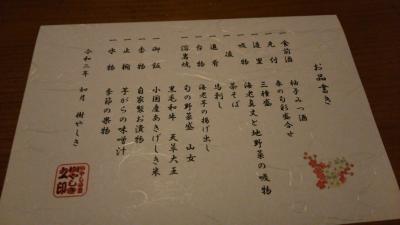 お品書き
一 食前酒 柚子みつ酒
一 先付 春の旬彩盛合せ
一 造里 三種盛
一 吸物 海老真丈と地野菜の吸物
一 凌 茶そば
一 進肴 馬刺し
一 台物 海老芋の揚げ出し
一 溶岩焼 旬の野菜盛 山女
黒毛和牛 天草大王
一 御飯 小国産あきげしき米
一 香物 自家製お漬物
一 止椀 芋がらの味噌汁
一 水物 季節の果物
令和二年 如月 樹やしき